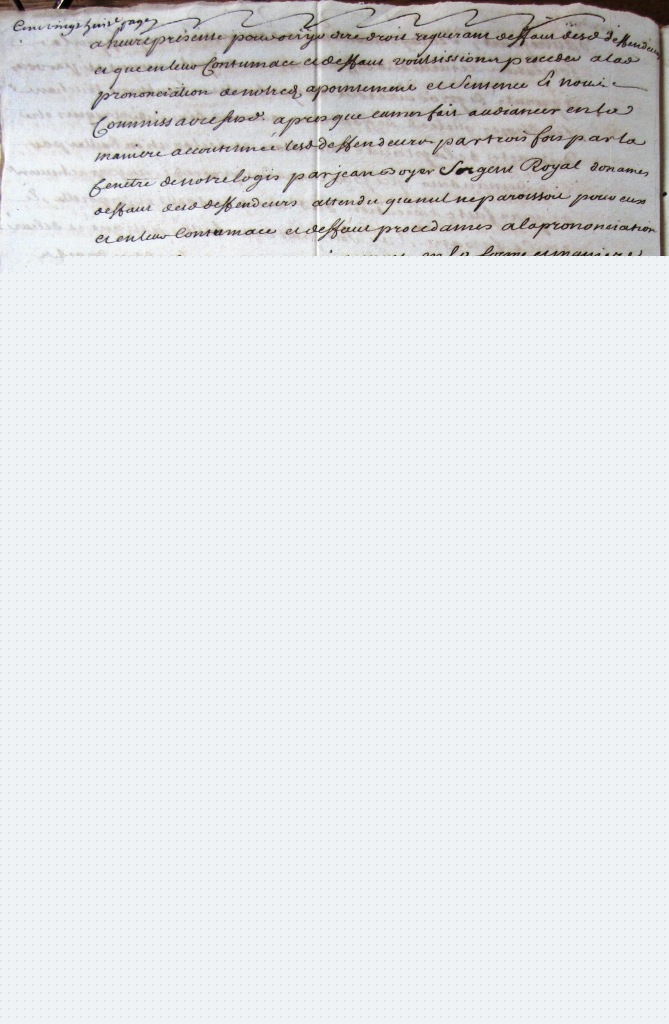 Cent vingt huit.e page
a heure présente pour ouir y dire droit requerant deffaut desd deffendeurs
et que en leur Contumace et deffaut voulsissions proceder a la d
prononciation de notred apointement et sentence Et nous
Commissaire susd. apres que eumes fait audiancer en la
maniere accoutumée lesd deffendeurs par trois fois par la
fenêtre de notre logis par jean Boyer Sergent Royal donames
deffaut desd deffendeurs attendu que nul ne paroissoit pour eux
et en leur Contumace et deffaut procedames a la prononciation
en la forme et maniere